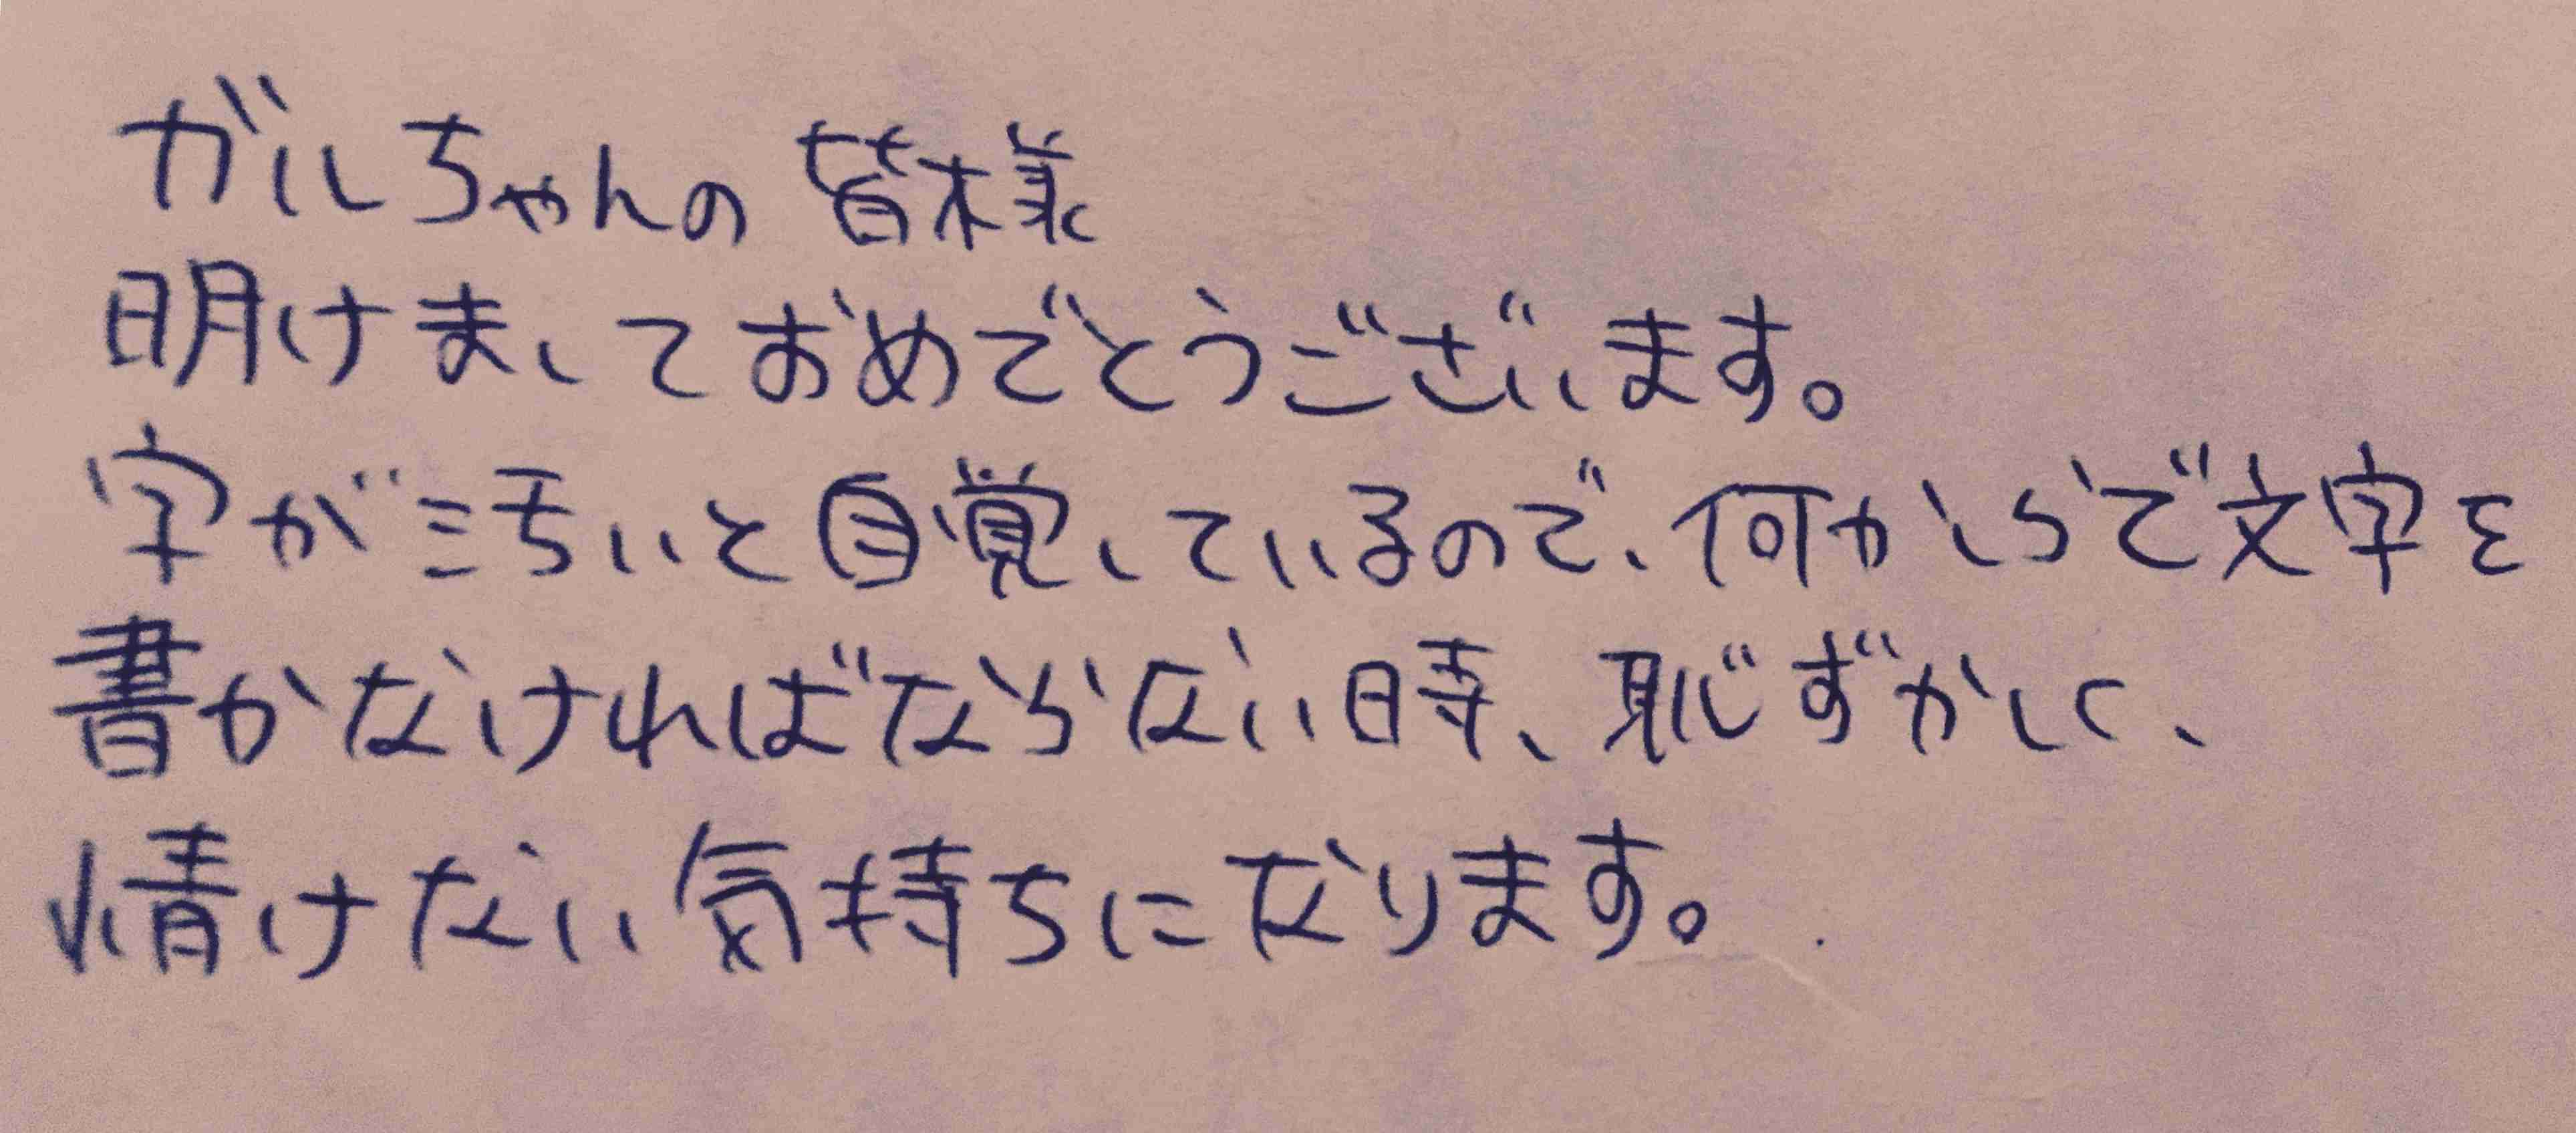 ガルちゃんの皆様
明けましておめでとうございます。
字が汚いと自覚しているので、何かしらで文字を
書かなければならない時、恥ずかしく、
情けない気持ちになります。